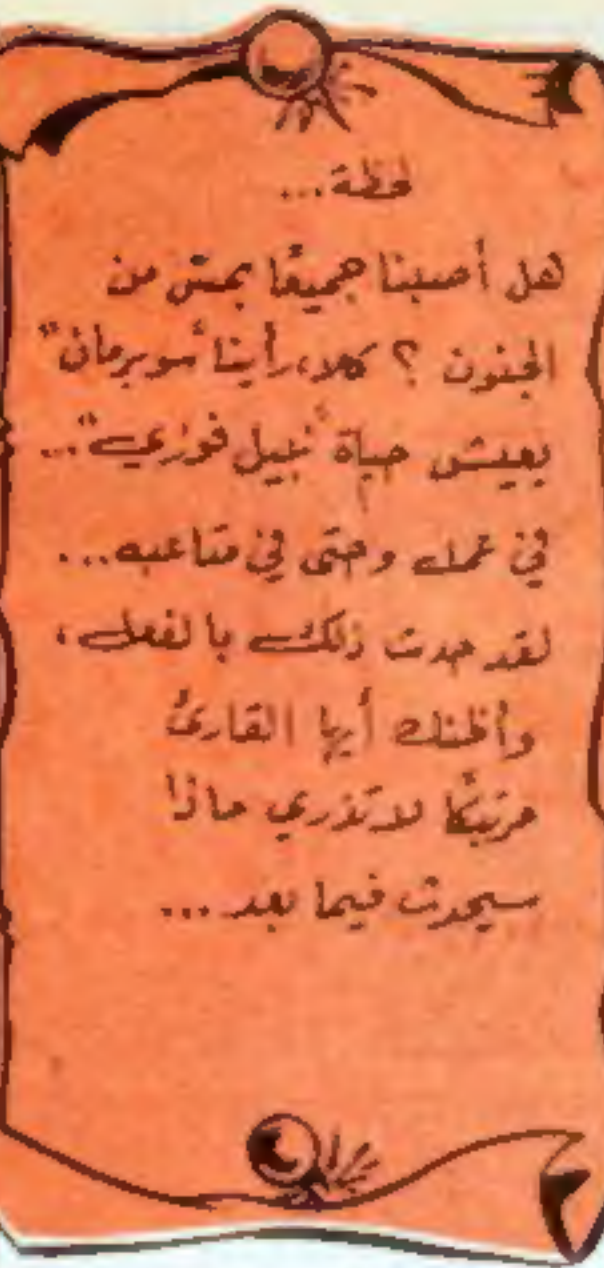 لحظة...
هل أصبنا جميعًا بمسّ من
الجنون ؟ كلا، رأينا "سوبرمان"
يعيش حياة "نبيل فوزي"...
في عمله وحتى في متاعبه...
لقد حدث ذلك بالفعل،
وأظنك أيها القارئ
مرتبكًا لا تدري ماذا
سيحدث فيما بعد...